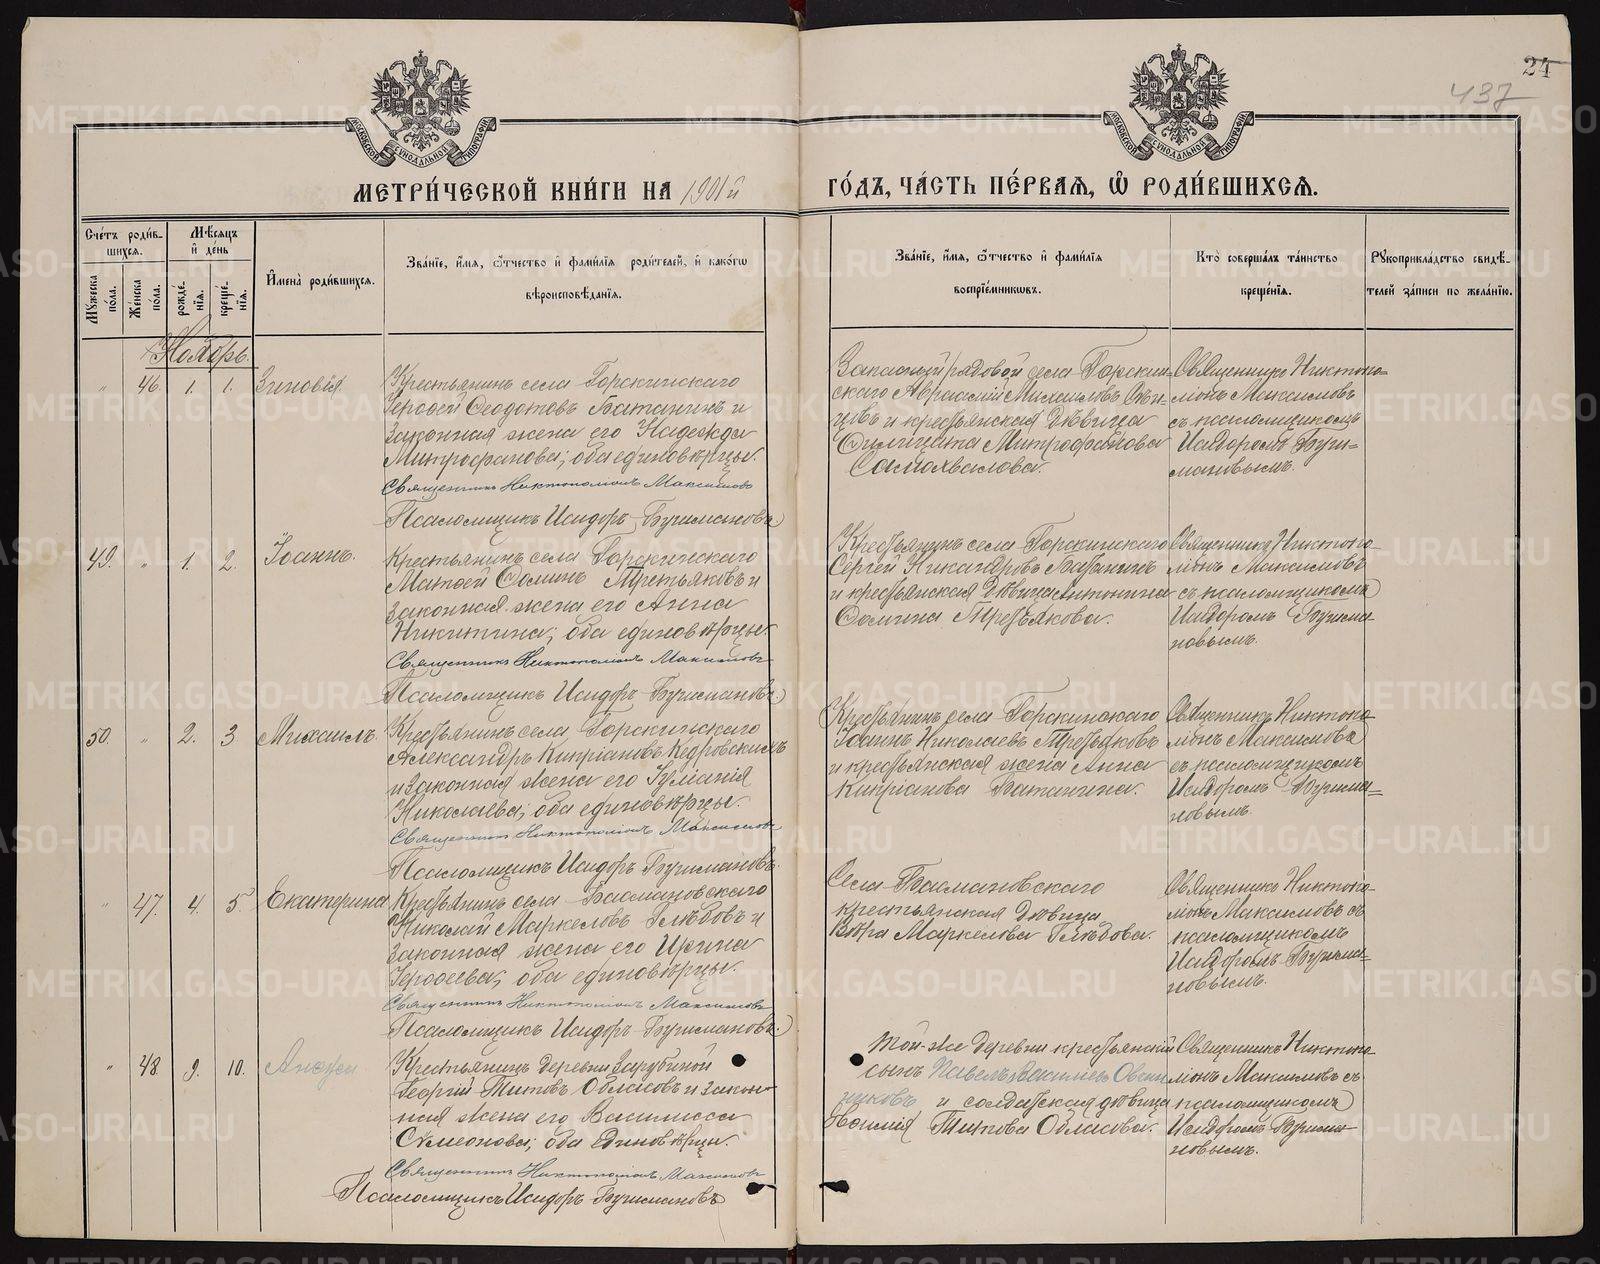 24
437
МОСКОВСКОЙ СѴНОДАЛЬНОЙ ТИПОГРАФІИ
МОСКОВСКОЙ СѴНОДАЛЬНОЙ ТИПОГРАФІИ
МЕТРИ́ЧЕСКОЙ КНИ́ГИ НА 1901й
ГО́ДЪ, ЧА́СТЬ ПЕ́РВАЯ, Ѡ РОДИ́ВШИХСЯ.
Сче́тъ роди́в-
шихся.
Му́жеска
по́ла.
Же́нска
по́ла.
Мѣ́сяцъ
и де́нь
рожде́-
нія.
креще́-
нія.
Имена̀ роди́вшихся.
Зва́ніе, и́мя, ѻ́тчество и фами́лія роди́телей, и како́гѡ
вѣроисповѣ́данія.
Зва́ніе, и́мя, ѻ́тчество и фами́лія
воспріе́мниковъ.
Кто̀ соверша́лъ та́инство
креще́нія.
Рукоприкла́дство свидѣ́-
телей за́писи по жела́нію.
Ноябрь.
" 46. 1. 1. Зиновія
Крестьянинъ села Горскинскаго
Ѳеодотовъ Батанинъ и
законная жена его Надежда
Митрофанова; оба единовѣрцы.
Священникъ Никтополіонъ Максимовъ
Псаломщикъ Исидоръ Бурмановъ
Запасный рядовой села Горскин-
скаго Михаиловъ
и крестьянская дѣвица
Митрофанова
Самохвалова.
Священникъ Никтопо-
ліонъ Максимовъ
съ псаломщикомъ
Исидоромъ Бурм-
ановымъ.
49. " 1. 2. Іоаннъ.
Крестьянинъ села Горскинскаго
Матѳей Ѳоминъ Третьяковъ и
законная жена его Анна
Никитина; оба единовѣрцы.
Священникъ Никтополіонъ Максимовъ
Псаломщикъ Исидоръ Бурмановъ
Крестьянинъ села Горскинскаго
Сергей Никандровъ
и крестьянская дѣвица Антонина
Ѳомина Третьякова.
Священникъ Никтопо-
ліонъ Максимовъ
съ псаломщикомъ
Исидоромъ Бурма-
новымъ.
50. " 2. 3 Михаилъ.
Крестьянинъ села Горскинскаго
Александръ Кипріановъ Кедровскихъ
и законная жена его Іуліанія
Николаева; оба единовѣрцы.
Священникъ Никтополіонъ Максимовъ
Псаломщикъ Исидоръ Бурмановъ.
Крестьянинъ села Горскинскаго
Іоаннъ Николаевъ Третьяковъ
и крестьянская жена Анна
Кипріанова Батанина.
Священникъ Никтопо-
ліонъ Максимовъ
съ псаломщикомъ
Исидоромъ Бурма-
новымъ.
" 47. 4. 5. Екатерина
Крестьянинъ села Басмановскаго
Николай Маркеловъ Глѣбовъ и
законная жена его Ирина
оба единовѣрцы.
Священникъ Никтополіонъ Максимовъ
Псаломщикъ Исидоръ Бурмановъ.
Села Басмановскаго
крестьянская дѣвица
Вѣра Маркелова Глѣбова.
Священникъ Никтопо-
ліонъ Максимовъ съ
псаломщикомъ
Исидоромъ Бурма-
новымъ.
" 48 9. 10.
Крестьянинъ деревни Зарубиной
Георгій Титовъ Обласовъ и закон-
ная жена его Василисса
Симеонова; оба единовѣрцы.
Священникъ Никтополіонъ Максимовъ
Псаломщикъ Исидоръ Бурмановъ
Той-же деревни крестьянскій
сынъ Павелъ Василіевъ Овсян-
никовъ и солдатская дѣвица
Титова Обласова.
Священникъ Никтопо-
ліонъ Максимовъ съ
псаломщикомъ
Исидоромъ Бурма-
новымъ.
METRIKI.GASO-URAL.RU